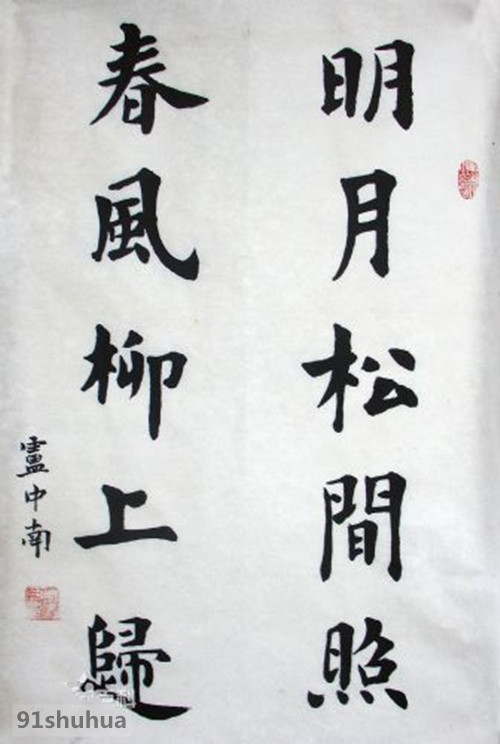 明月松間照
春風柳上歸
盧中南
91shuhua